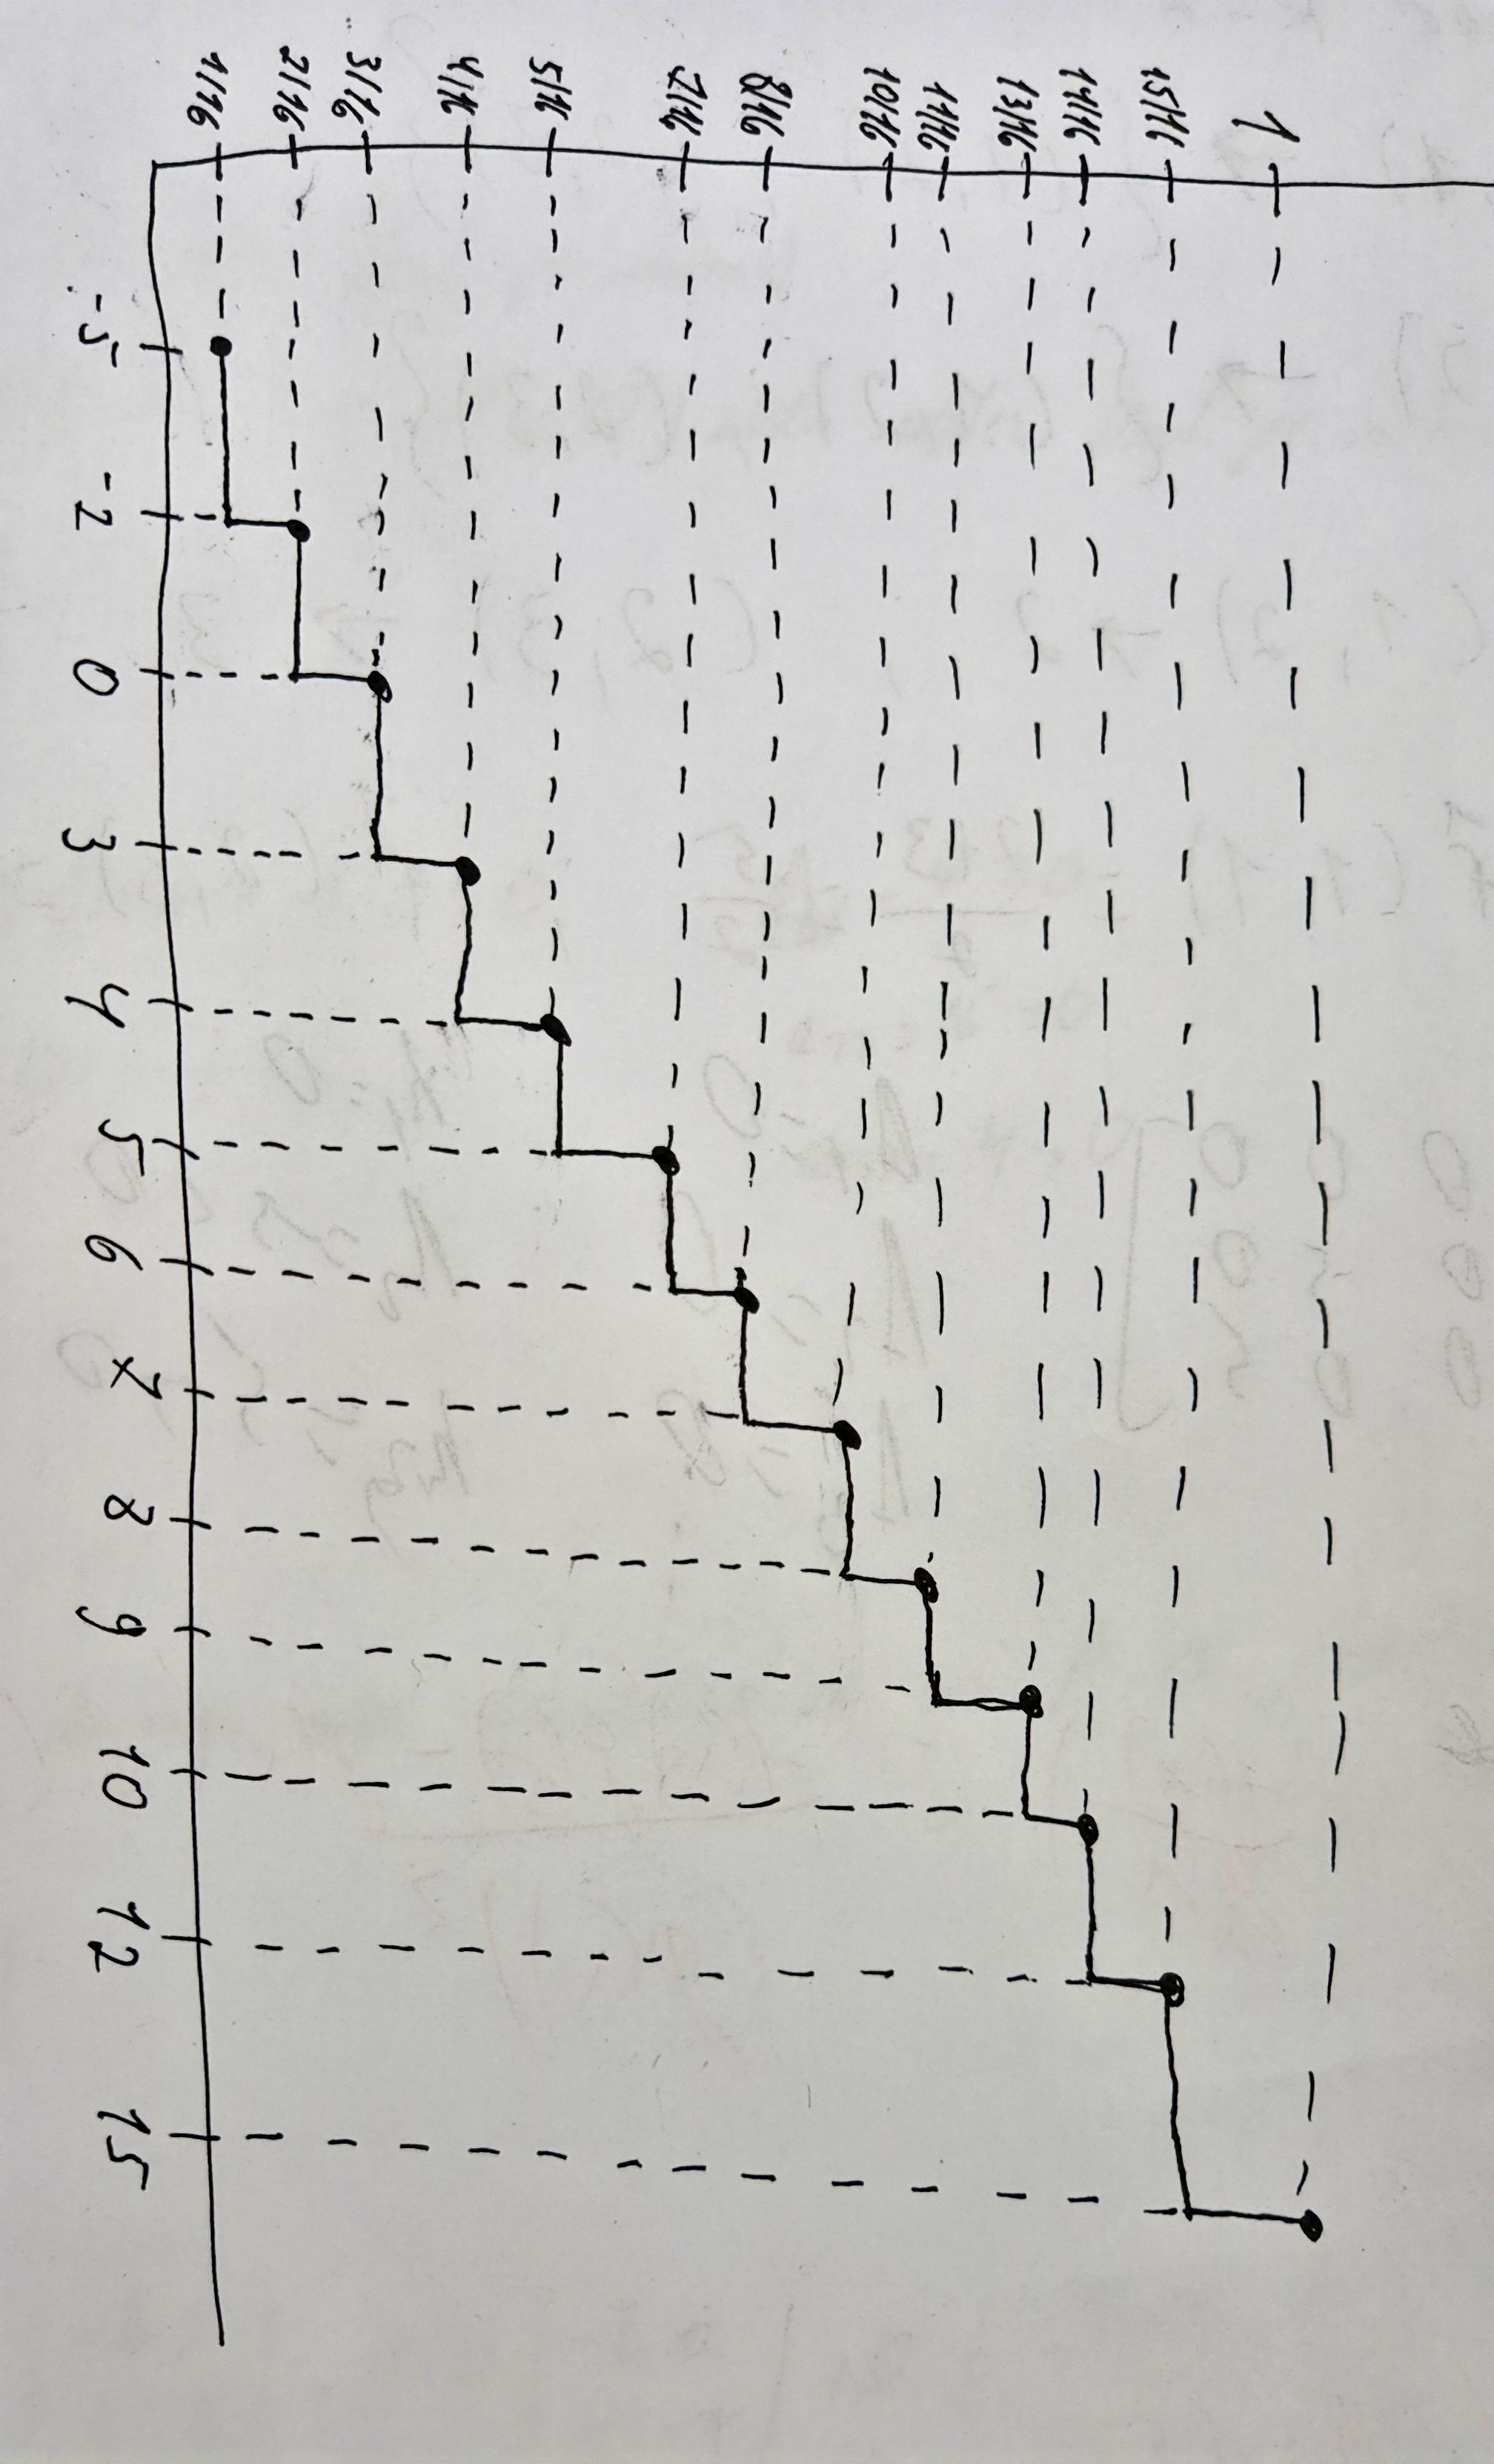 1
15/16
14/16
13/16
11/16
10/16
8/16
7/16
5/16
4/16
3/16
2/16
1/16
-5 -2 0 3 4 5 6 7 8 9 10 12 15